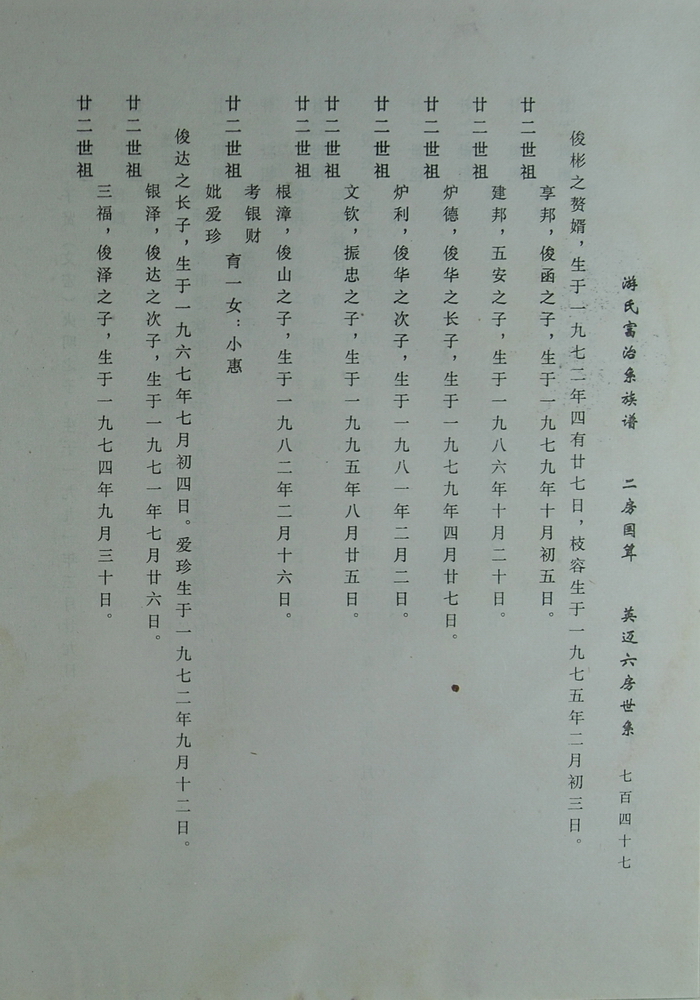 游氏富治系族谱 二房国算 英迈六房世系 七百四十七
俊彬之赘婿，生于一九七二年四有廿七日，枝容生于一九七五年二月初三日。
廿二世祖
享邦，俊函之子，生于一九七九年十月初五日。
廿二世祖
建邦，五安之子，生于一九八六年十月二十日。
廿二世祖
炉德，俊华之长子，生于一九七九年四月廿七日。
廿二世祖
炉利，俊华之次子，生于一九八一年二月二日。
廿二世祖
文钦，振忠之子，生于一九九五年八月廿五日。
廿二世祖
根漳，俊山之子，生于一九八二年二月十六日。
廿二世祖
考银财
育一女：小惠
妣爱珍
俊达之长子，生于一九六七年七月初四日。爱珍生于一九七二年九月十二日。
廿二世祖
银泽，俊达之次子，生于一九七一年七月廿六日。
廿二世祖
三福，俊泽之子，生于一九七四年九月三十日。